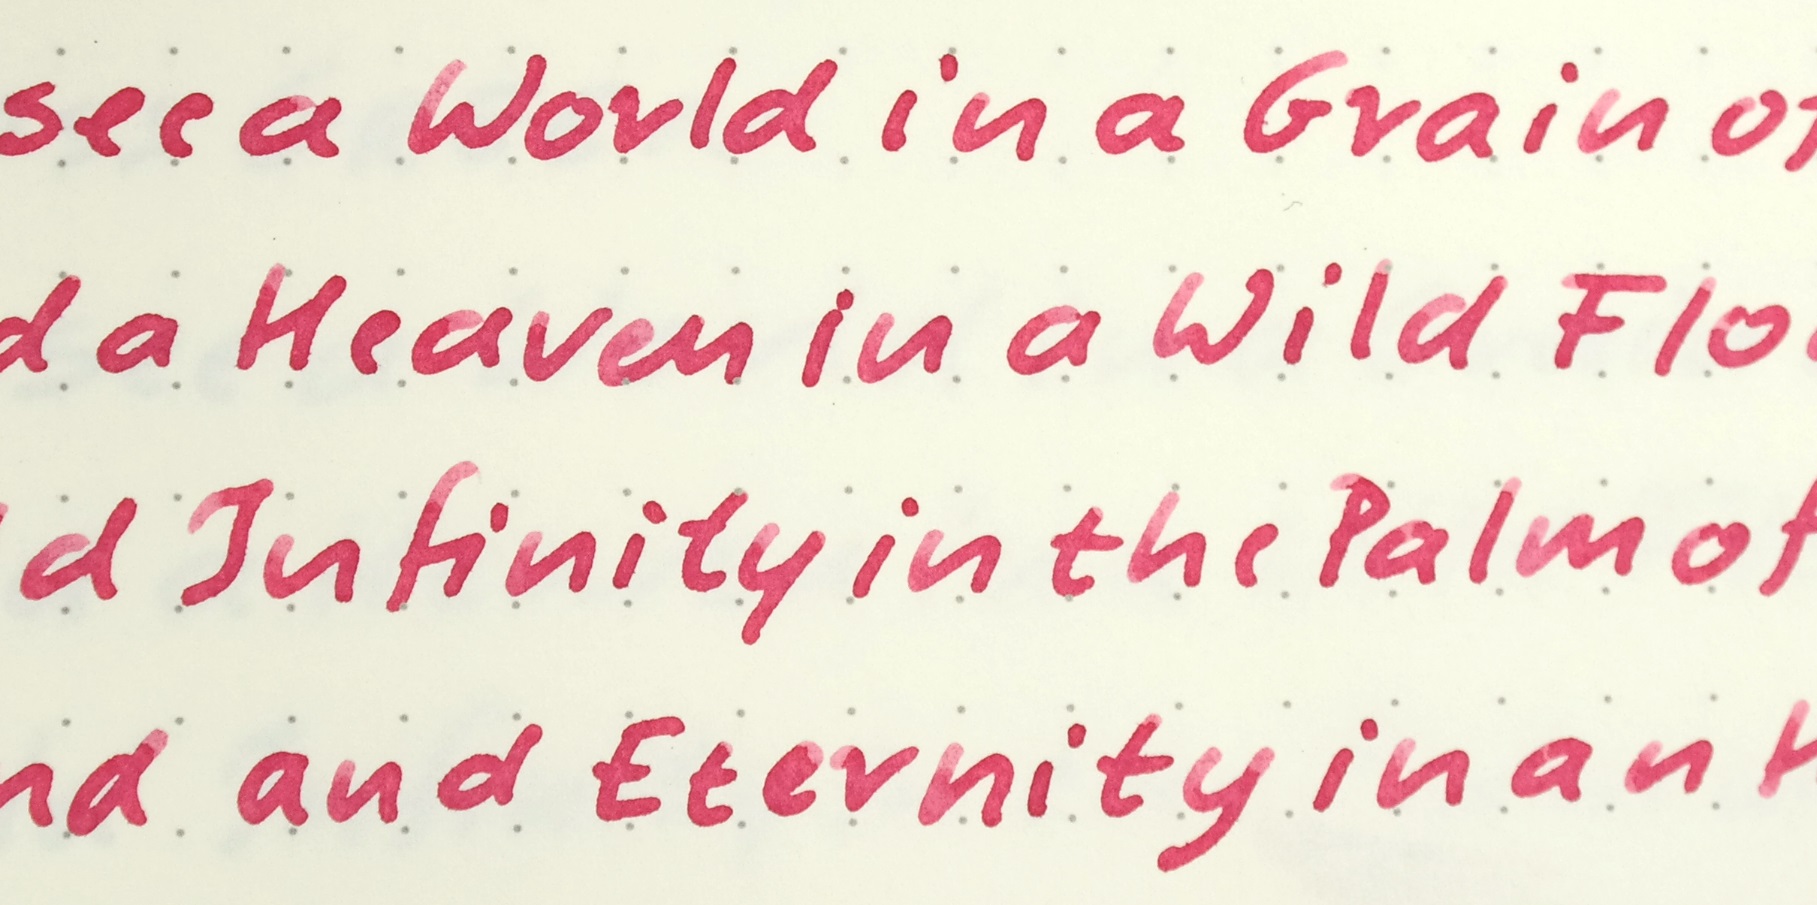 see a World in a Grain of
d a Heaven in a Wild Flo
d Infinity in the Palm of
nd and Eternity in an H